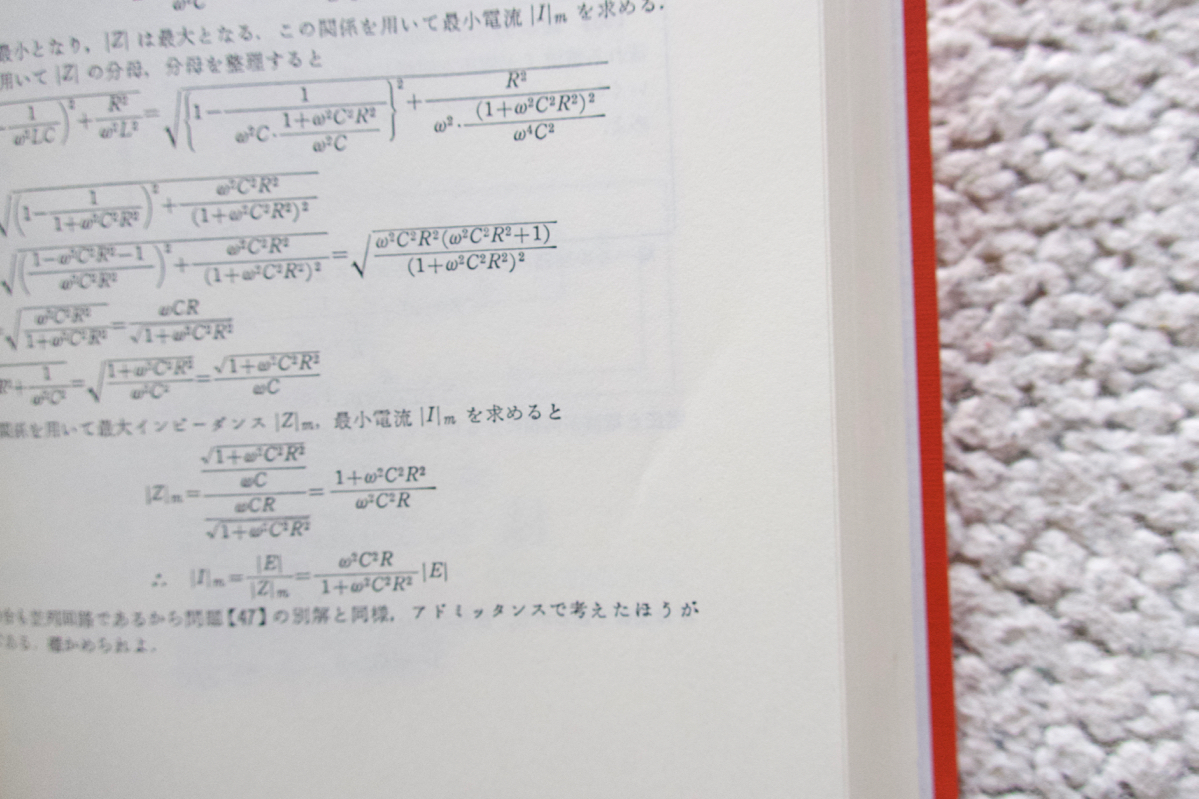 最小となり，|Z| は最大となる．この関係を用いて最小電流 |I|ₘ を求める．
用いて |Z| の分母，分母を整理すると
-1/(ω²LC))²+R²/(ω²L²)=√({1-1/(ω²C・(1+ω²C²R²)/(ω²C))}²+R²/(ω²・(1+ω²C²R²)²/(ω⁴C²)))
√((1-1/(1+ω²C²R²))²+ω²C²R²/(1+ω²C²R²)²)
√(((1-ω²C²R²-1)/(ω²C²R²))²+ω²C²R²/(1+ω²C²R²)²)=√(ω²C²R²(ω²C²R²+1)/(1+ω²C²R²)²)
√(ω²C²R²/(1+ω²C²R²))=ωCR/√(1+ω²C²R²)
R²+1/(ω²C²)=√((1+ω²C²R²)/(ω²C²))=√(1+ω²C²R²)/(ωC)
関係を用いて最大インピーダンス |Z|ₘ，最小電流 |I|ₘ を求めると
|Z|ₘ=(√(1+ω²C²R²)/(ωC))/(ωCR/√(1+ω²C²R²))=(1+ω²C²R²)/(ω²C²R)
∴ |I|ₘ=|E|/|Z|ₘ=ω²C²R/(1+ω²C²R²)|E|
並列回路であるから問題【47】の別解と同様，アドミッタンスで考えたほうが
ある．確かめられよ．